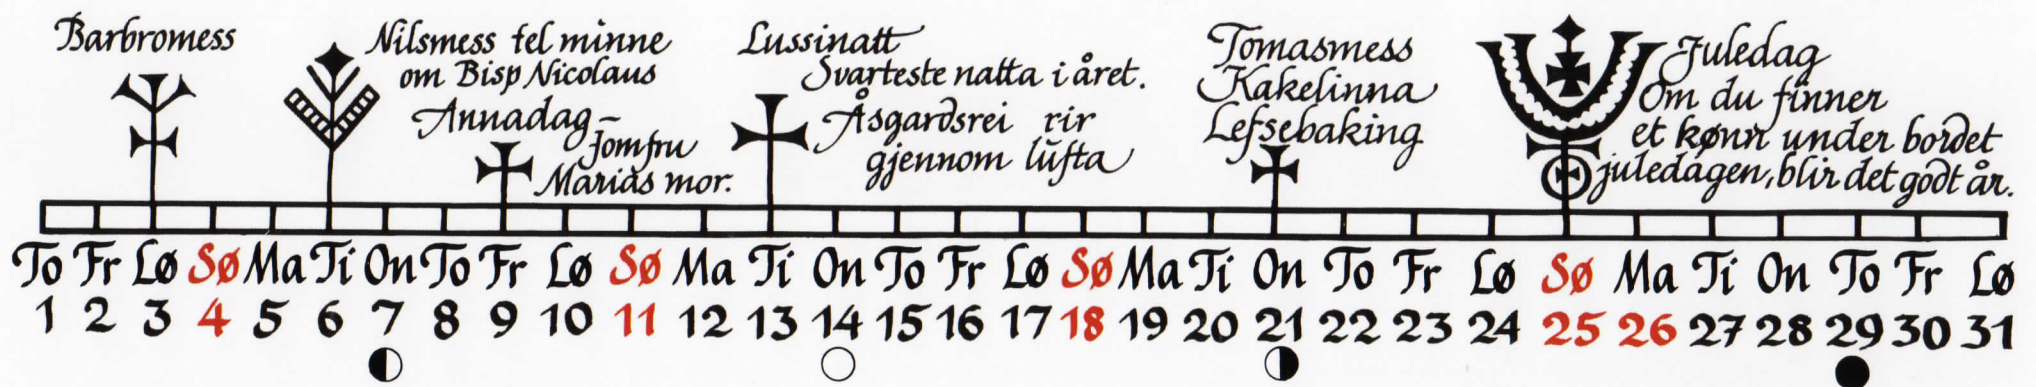 Barbromess
Nilsmess tel minne
om Bisp Nicolaus
Annadag –
Jomfru
Marias mor.
Lussinatt
Svarteste natta i året.
Åsgardsrei rir
gjennom lufta
Tomasmess
Kakelinna
Lefsebaking
Juledag
Om du finner
et kønn under bordet
juledagen, blir det godt år.
To Fr Lø Sø Ma Ti On To Fr Lø Sø Ma Ti On To Fr Lø Sø Ma Ti On To Fr Lø Sø Ma Ti On To Fr Lø
1 2 3 4 5 6 7 8 9 10 11 12 13 14 15 16 17 18 19 20 21 22 23 24 25 26 27 28 29 30 31